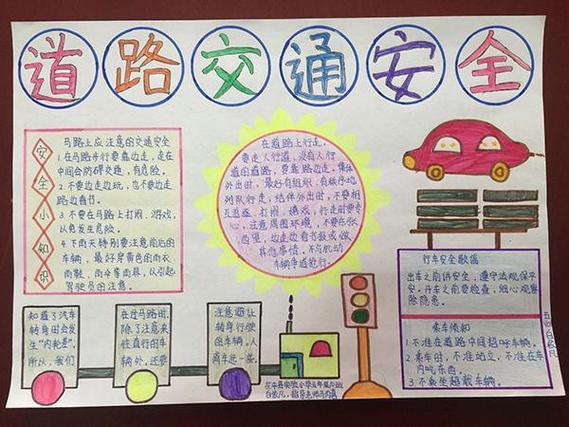 道路交通安全
安全小知识
马路上应注意的交通安全
1.在马路步行要靠边走,走在
中间会防碍交通,有危险。
2.不要边走边玩,也不要边走
路边看书。
3.不要在马路上打闹、游戏,
以免发生危险。
4.下雨天特别要注意前后的
车辆,最好穿黄色的雨衣、
雨鞋、雨伞等雨具,以引起
驾驶员的注意。
在道路上行走,
要走人行道,没有人行
道的道路,要靠路边走。集体
外出时,最好有组织、有秩序地
列队行走;结伴外出时,不要相
互追逐、打闹、嬉戏;行走时要专
心,注意周围环境,不要东张
西望、边走边看书报或做
其他事情。不与机动
车辆争道抢行。
行车安全歌谣
出车之前讲安全,遵守法规保平
安。开车之前要检查,细心观察
除隐患。
乘车须知
1.不准在道路中间招呼车辆。
2.乘车时,不准站立,不准在车
内吃东西。
3.不乘坐超载车辆。
知道了汽车
转弯时会发
生“内轮差”。
所以,我们
在过马路时,
除了注意来
往直行的车
辆外,还要
注意避让
转弯行驶
的车辆。人
离车远一些。